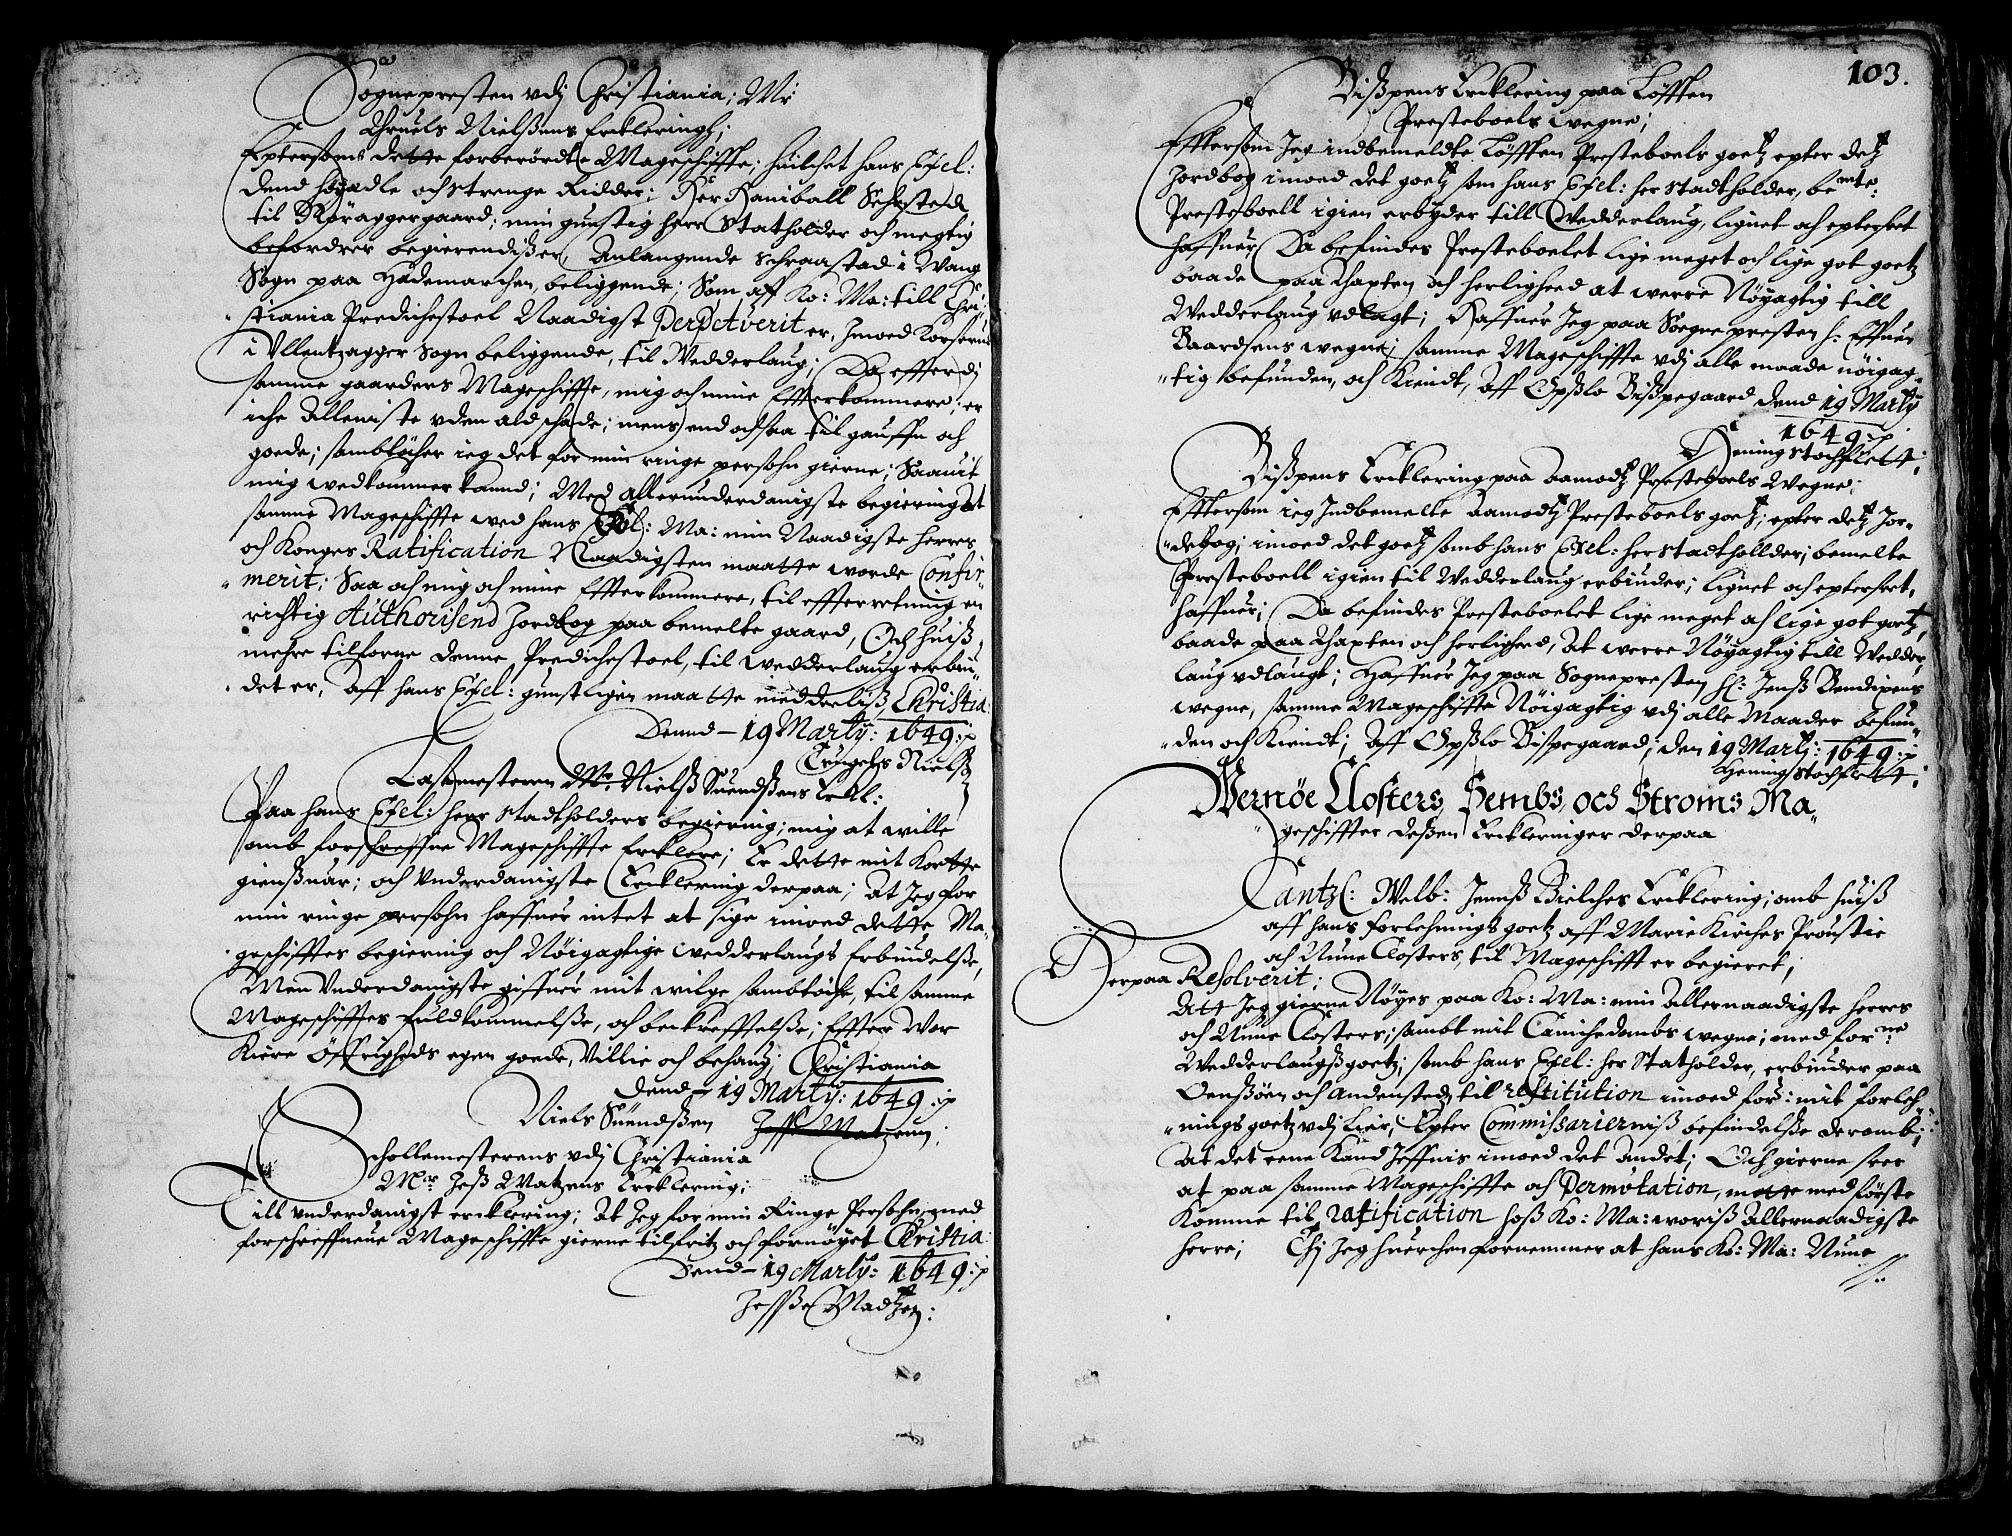 Sognepresten vdj Christiania; Mr
Thruels Nielßens Erkleringh;
Eptersom dette forberørdte Mageschiffte; huilchet hans Exel:
Dend høyadle och strenge Ridder; Her Haniball Sehestedt
til Nøraggergaard; min gunstig herre Statholder och megtig
befordrer begierendiß er, Anlangende Schraastad i Wang
Sogn paa Hademarchen, beliggende; Som aff Ko: Ma: till Chri-
stiania Predichestoel Naadigst Perpetuerit er, Imoed Korserud
i Ullentzagger Sogn beliggende, til Wedderlaug; Da efferdi
samme gaarders Mageschiffte, mig och mine Efterkommere, er
iche Alleniste uden ald schade; mens end ochsaa til gauffn och
goede; sambtöcher ieg det for min ringe persohn gierne; Saauit
mig wedkommer kannd; Med allerunderdanigste begiering at
samme Mageschiffte wed hans Kol: Ma: min Naadigste Herres
och Konges Ratification Naadigsten maatte worde Confir-
merit; Saa och mig och mine Efterkommere, til effterretning en
richtig Authorisend Jordbog paa bemelte gaard, Och huiß
mehre tilforne denne Predichestoel, til wedderlaug erbiu-
det er, Aff hans Exel: gunstligen maatte meddeeliß Christia:
Dennd 19 Marty: 1649:
Trugels Nielß
Lassmesteren Mr. Nielß Suendßens Erkl:
Paa hans Exel: herr Stadtholders begiering; mig at wille
omb forschreffne Mageschiffte Erklere; Er dette mit Kortte
gienßuar; och Vnderdanigste Erklering derpaa; At Jeg for
min ringe persohn haffuer intet at sige imoed dette Ma-
geschifftes begiering och Nöigagtige wedderlaugs Erbiudelse,
Men Vnderdanigste giffuer mit wilge sambtöche, til samme
Mageschifftes fuldkommelße, och bekrefftelße; Effter Vor
Kiere Öffrigheds egen goede, Villie och behaug; Christiania
Dend 19 Marty: 1649:
Niels Suendßen Jesse Matzeun:
Schollemesterens vdj Christiania
Mr. Jeß Matzens Erklering;
Till vnderdanigst erklering; At Jeg for min Ringe Persohn, med
forschreffneue Mageschiffte gierne tilfritz och fornøyet Christia:
Dend 19 Marty: 1649:
Jesße Madtzen:
103.
Bißpens Erklering paa Löfften
Presteboels wegne;
Efftersom Jeg indbemeldte Löfften Presteboels goetz epter detz
Jordbog imoed det goetz som hans Exel: her Stadtholder, bemte
Presteboell igien erbyder till Wedderlaug, lignet och epterseet
haffuer, Da befindes Presteboelet lige meget och lige got goetz
baade paa Thaxten och herlighed at werre Nöyagtig till
Wedderlaug udlagt; Haffuer Jeg paa Soegnepresten H: Effuer
Baardsens wegne; samme Mageschiffte vdj alle maade nöigag-
tig befunden, och Kiendt, Aff Opslo Bißpegaard Dend 19 Marty
1649:
Hening Stochflett;
Bißpens Erklering paa Aamodtz Presteboels Wegne;
Efftersom ieg Indbemelte Aamodtz Presteboels goetz, epter detz Jor-
debog; imoed det goetz somb hans Exel: her Stadthollder; bemelte
Presteboell igien til Wedderlaug erbiuder; lignet och epterseet,
haffuer; Da befindes Presteboelet lige meget och lige got goetz,
baade paa Thaxten och herlighed, At werre Nöyagtig till Wedder-
laug udlaugt; Haffuer Jeg paa Sognepresten H: Jenß Bendixens
wegne, samme Mageschiffte Nöigagtig vdj alle Maader befun-
den och Kiendt; Aff Opslo Bispegaard; den 19 Marty: 1649:
Hening Stochflett;
Wernöe Closters, Sembs, och Stroms Ma-
geschiffter deßen Erkleringer derpaa
Cantzl: Welb: Jenß Bielches Erklering; omb huiß
aff hans forlehnings goetz aff Marie Kirches Proustie
och Nune Closters, til Mageschifft er begieret;
Derpaa Resolverit;
Att Jeg gierne Nöyes paa Ko: Ma: min Allernaadigste Herres
och Nune Closters; sambt mit Canichedombs wegne; med forne
Wedderlaugßgoetz; somb hans Exel: her Statholder, erbiuder paa
Oenßöen och Andensteds til restitution imoed fors: mit forleh-
nings goetz vdj Lier; Epter Commissarierniß befindelße deromb;
At det eene Kand Jeffnis imoed det Andet; Och gierne seer
at paa samme Mageschiffte och Permutation, motte med förste
Komme til ratification hoß Ko: Ma: woriß Allernaadigste
Herre; Thj Jeg huerchen fornemmer at hans Ko: Ma: Nune